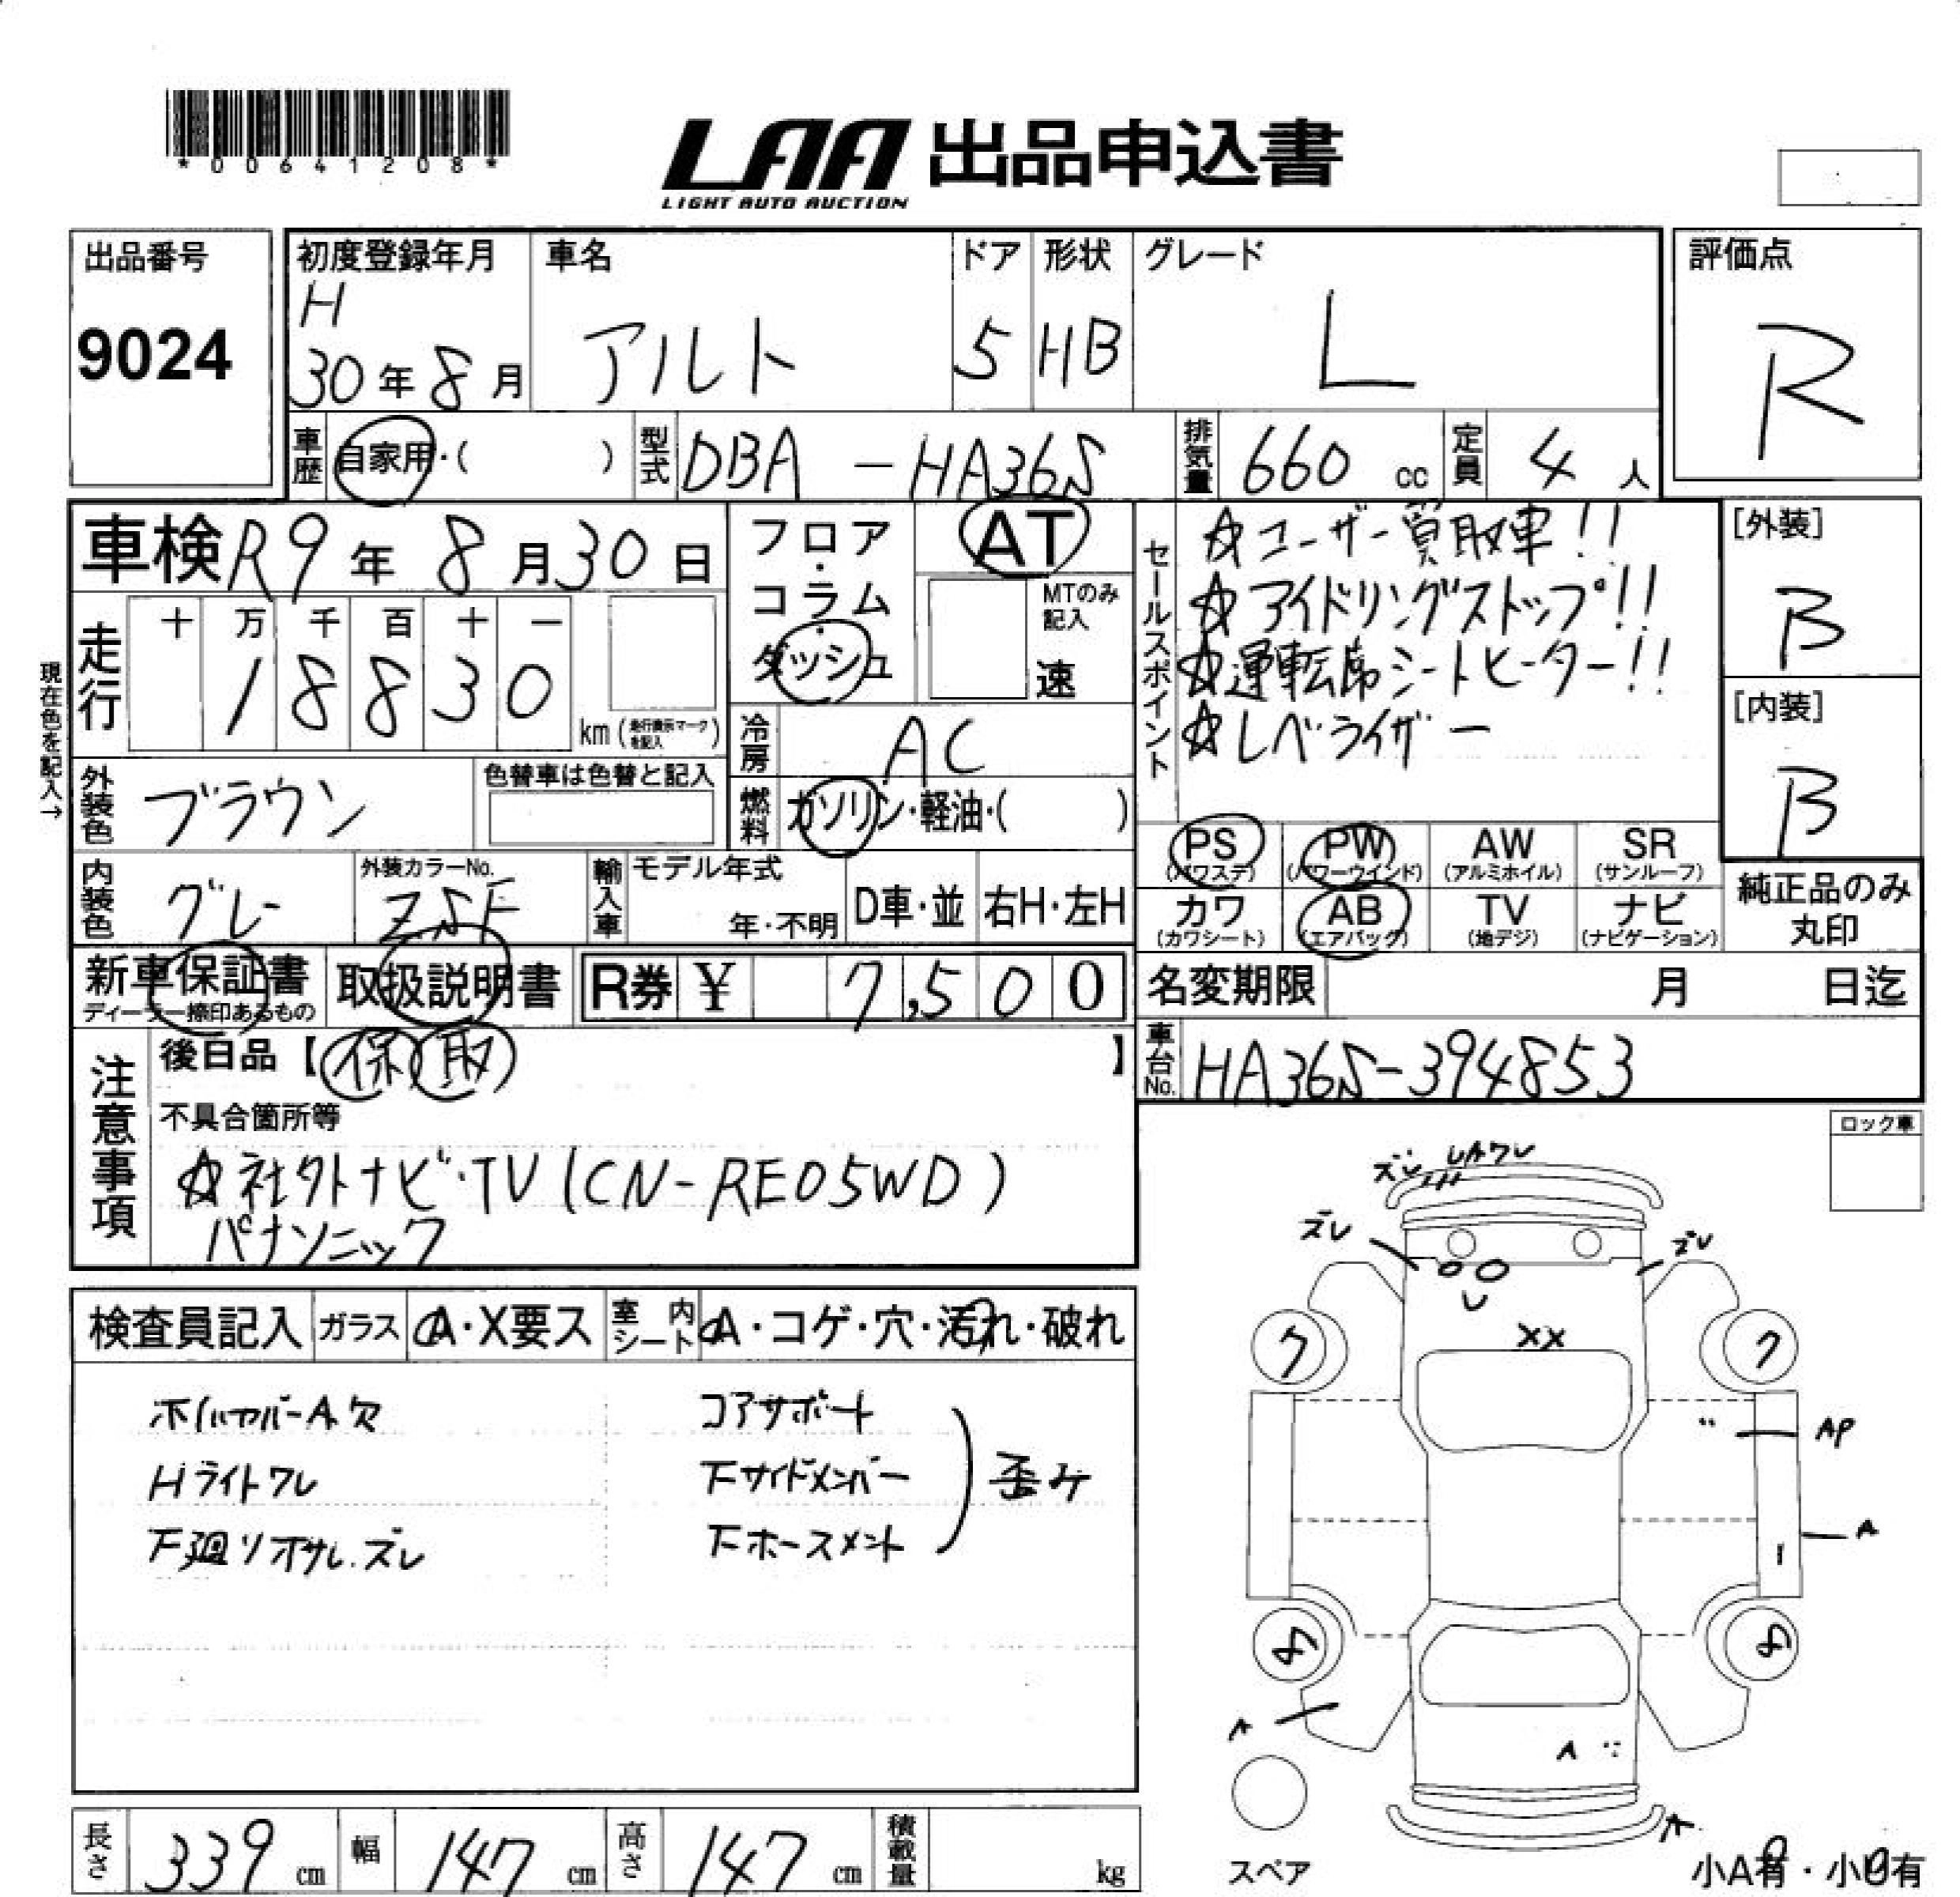 *00641208*
LAA 出品申込書
LIGHT AUTO AUCTION
出品番号
9024
初度登録年月
H
30年8月
車名
アルト
ドア
5
形状
HB
グレード
L
評価点
R
車歴
自家用・( )
型式
DBA-HA36S
排気量
660 cc
定員
4人
車検 R9年8月30日
現在色を記入→
走行
十万千百十一
18830
km(走行表示マークを記入)
フロア・コラム・ダッシュ
AT
MTのみ記入
速
冷房
AC
燃料
ガソリン・軽油・( )
外装色
ブラウン
色替車は色替と記入
内装色
グレー
外装カラーNo.
ZSF
輸入車
モデル年式
年・不明
D車・並
右H・左H
セールスポイント
☆ユーザー買取車!!
☆アイドリングストップ!!
☆運転席シートヒーター!!
☆レベライザー
[外装]
B
[内装]
B
PS
(パワステ)
PW
(パワーウインド)
AW
(アルミホイル)
SR
(サンルーフ)
カワ
(カワシート)
AB
(エアバック)
TV
(地デジ)
ナビ
(ナビゲーション)
純正品のみ
丸印
新車保証書
ディーラー捺印あるもの
取扱説明書
R券 ¥ 7,500
名変期限 月 日迄
車台No.
HA36S-394853
注意事項
後日品【保 取】
不具合箇所等
☆社外ナビ・TV(CN-RE05WD)
パナソニック
ロック車
検査員記入
ガラス
A・X要ス
室内シート
A・コゲ・穴・汚れ・破れ
ホイルカバーA.欠
Hライトワレ
下廻りオサレ.ズレ
コアサポート
下サイドメンバー
下ホースメント
歪み
ズレ UAワレ
ズレ
ズレ
U
XX
7
7
AP
A
8
8
A
A
A
スペア
小A有・小U有
長さ
339 cm
幅
147 cm
高さ
147 cm
積載量
kg